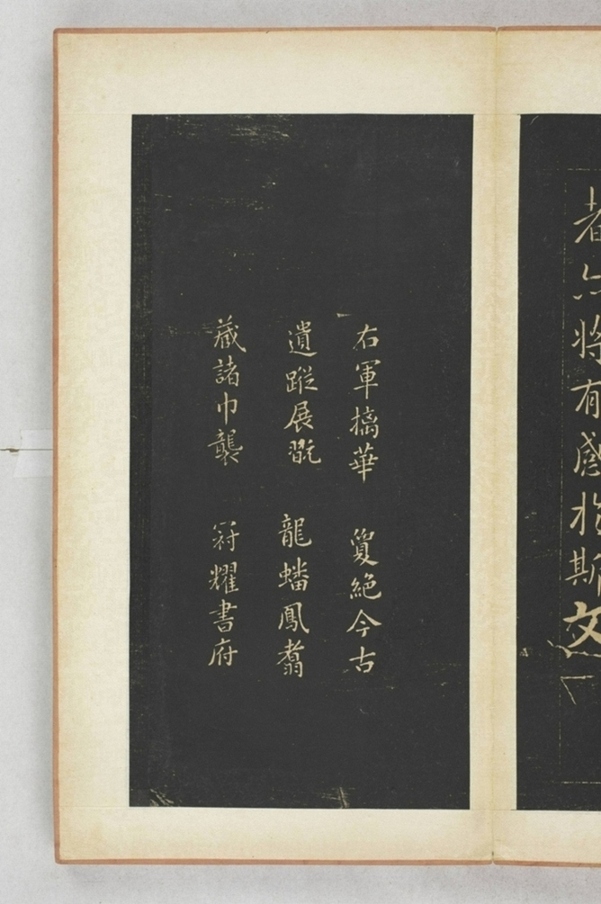 者亦將有感於斯文
右軍摛華　夐絕今古
遺蹤展翫　龍蟠鳳翥
藏諸巾襲　冠耀書府